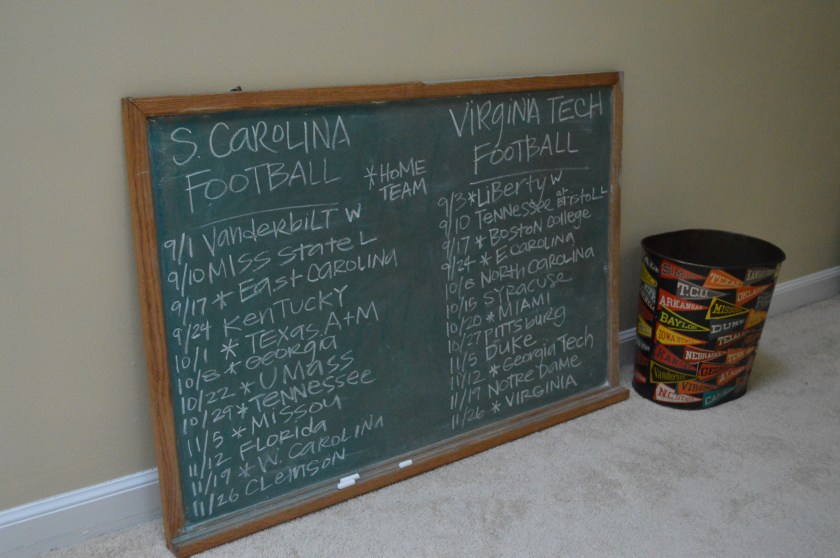 S. CAROLINA
FOOTBALL
9/1 Vanderbilt W
9/10 MISS STATE L
9/17 * EAST CAROLINA
9/24 KENTUCKY
10/1 * TEXAS A+M
10/8 * GEORGIA
10/22 * U MASS
10/29 * TENNESSEE
11/5 * MISSOU
11/12 FLORIDA
11/19 * W. CAROLINA
11/26 CLEMSON
* HOME
TEAM
VIRGINIA TECH
FOOTBALL
9/3 * LIBERTY W
9/10 TENNESSEE at BRISTOL L
9/17 * BOSTON COLLEGE
9/24 * E CAROLINA
10/8 NORTH CAROLINA
10/15 SYRACUSE
10/20 * MIAMI
10/27 PITTSBURG
11/5 DUKE
11/12 * GEORGIA TECH
11/19 NOTRE DAME
11/26 * VIRGINIA
T.C.U.
ARKANSAS
BAYLOR
DUKE
NEBRASKA
Vanderbilt